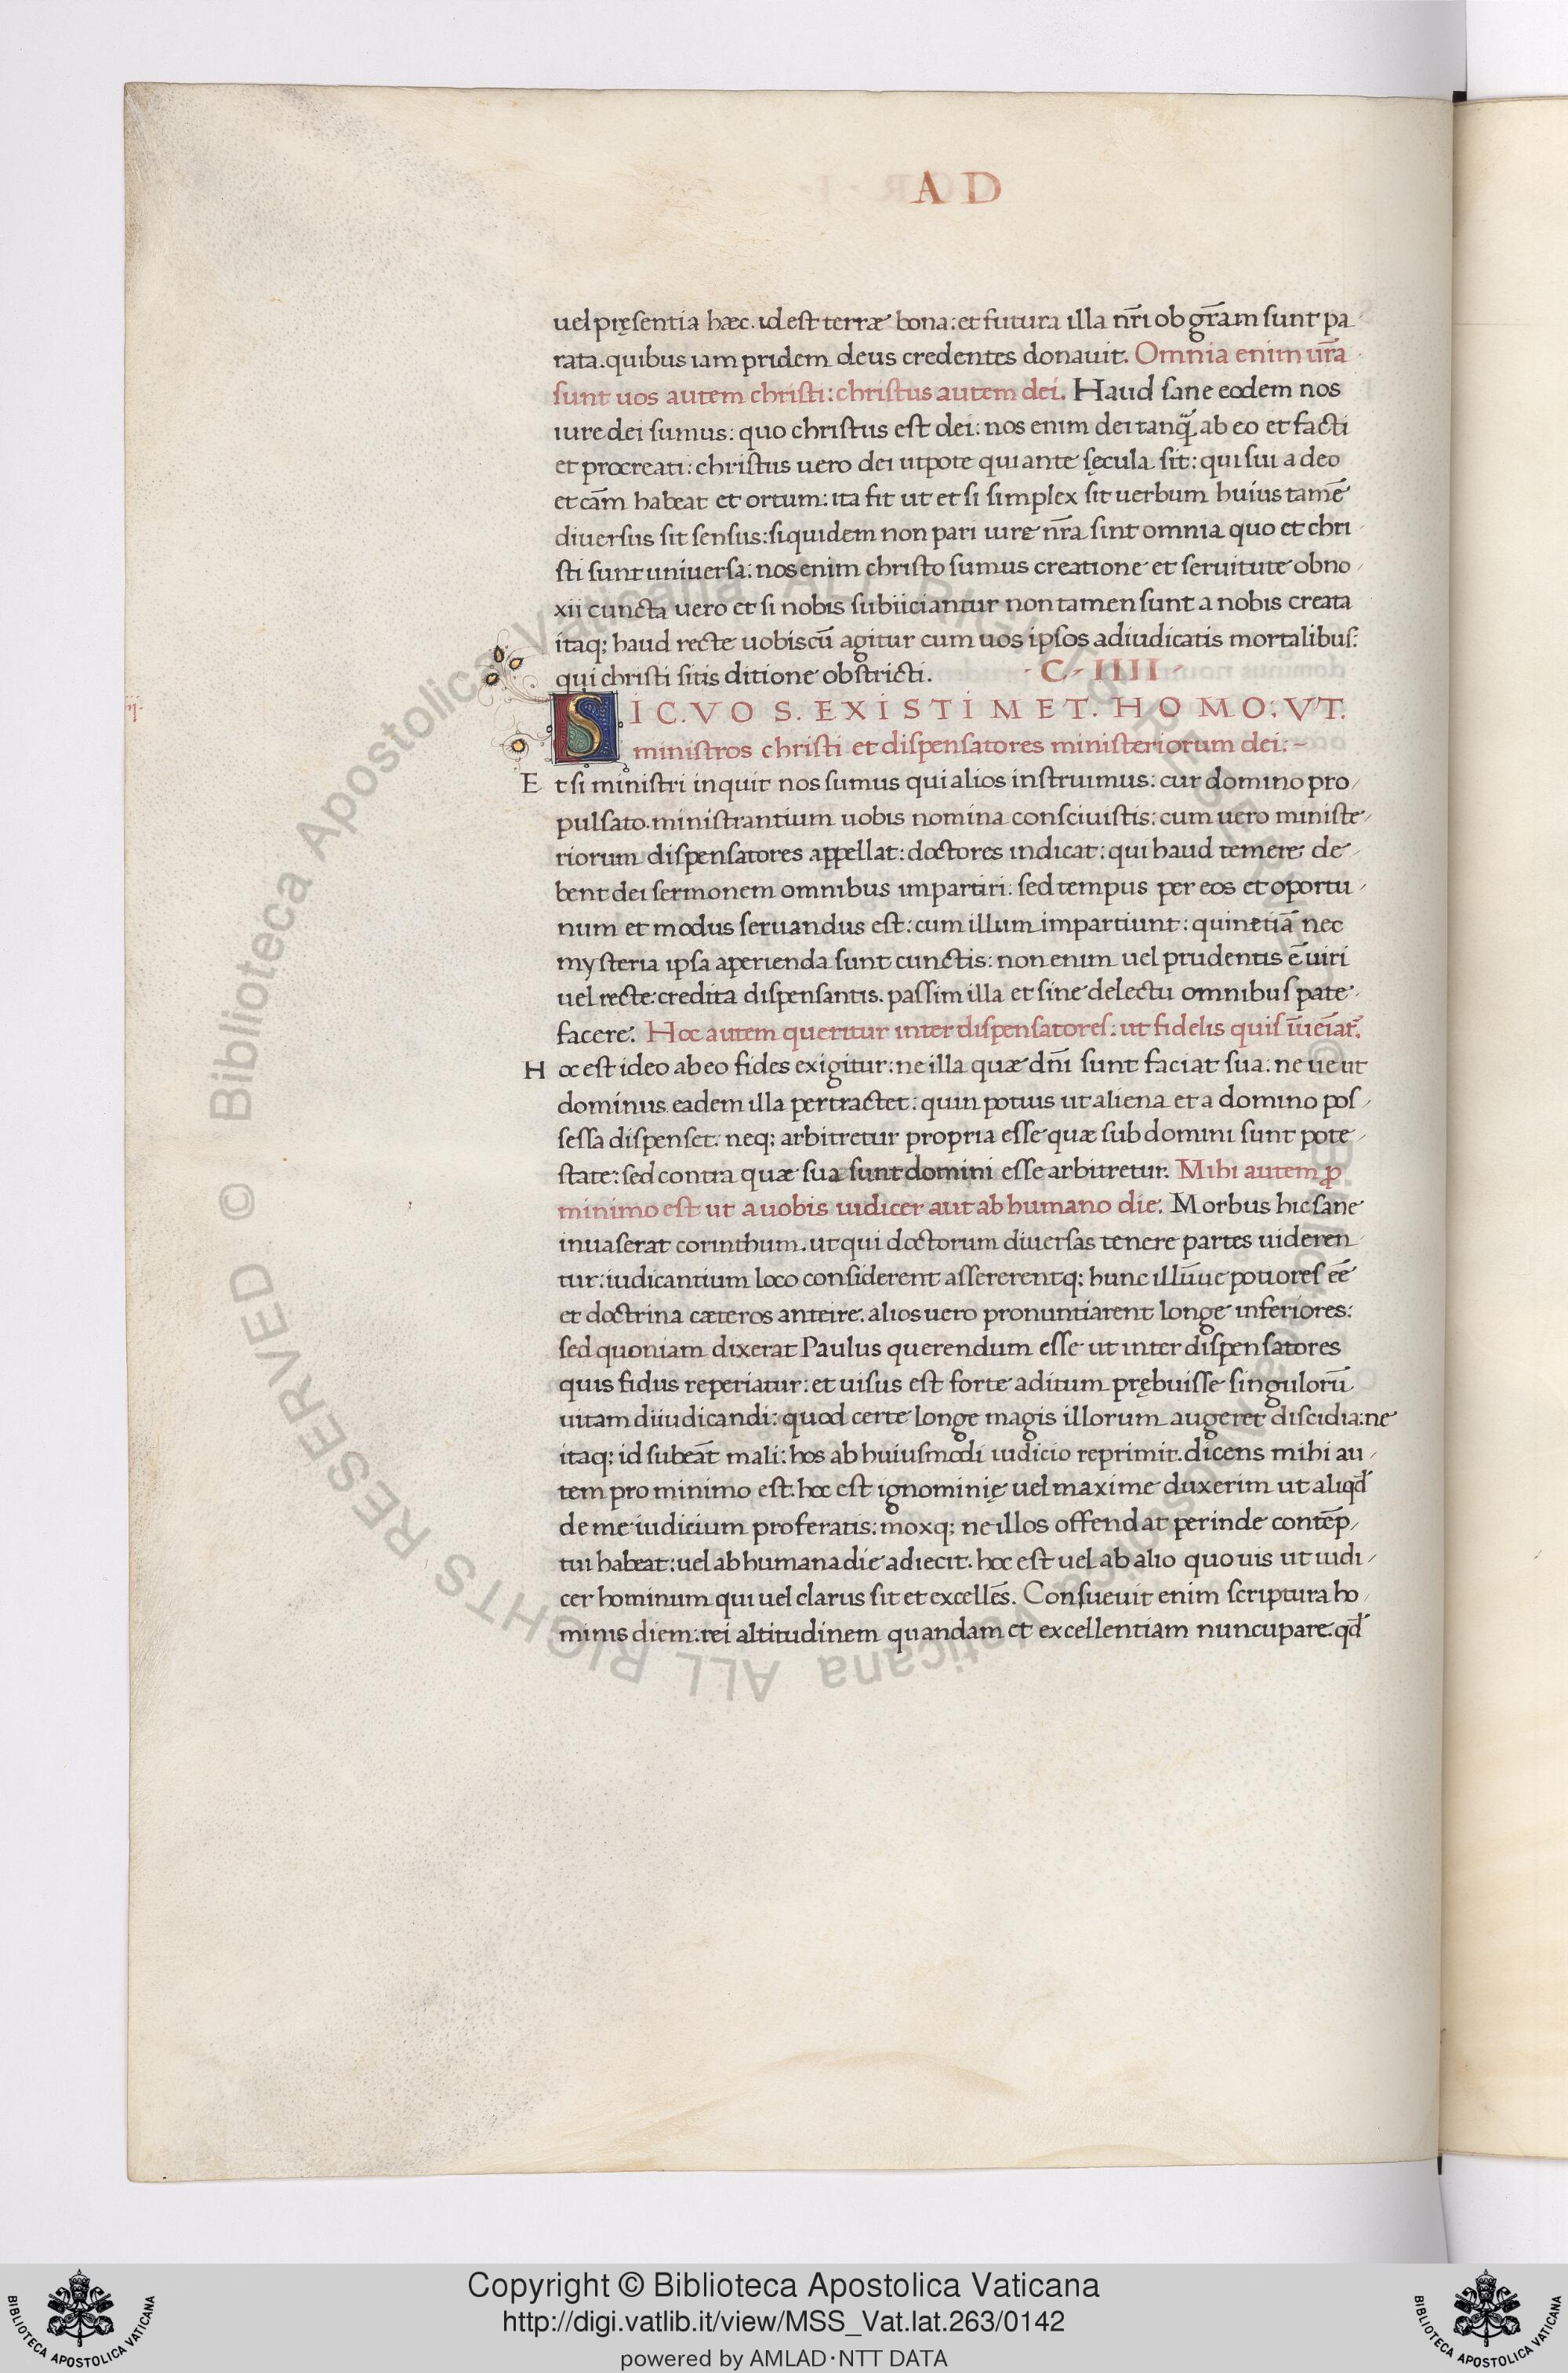 A D
uel pręsentia hæc. id est terræ bona: et futura illa nr̄i ob gr̄am sunt pa
rata. quibus iam pridem deus credentes donauit. Omnia enim ur̄a
sunt uos autem christi: christus autem dei. Haud sane eodem nos
iure dei sumus: quo christus est dei: nos enim dei tanq̃ ab eo et facti
et procreati: christus uero dei utpote qui ante sęcula sit: qui sui a deo
et cām habeat et ortum: ita fit ut et si simplex sit uerbum huius tamē
diuersus sit sensus: siquidem non pari iure nr̄a sint omnia quo et chri
sti sunt uniuersa: nos enim christo sumus creatione et seruitute obno
xii cuncta uero et si nobis subiiciantur non tamen sunt a nobis creata
itaq; haud recte uobiscū agitur cum uos ipsos adiudicatis mortalibus:
qui christi sitis ditione obstricti. C IIII
SIC. VOS. EXISTIMET. HOMO. VT.
ministros christi et dispensatores ministeriorum dei:~
Et si ministri inquit nos sumus qui alios instruimus: cur domino pro
pulsato. ministrantium uobis nomina consciuistis: cum uero ministe
riorum dispensatores appellat: doctores indicat: qui haud temere de
bent dei sermonem omnibus impartiri: sed tempus per eos et oportu
num et modus seruandus est: cum illum impartiunt: quinetiā nec
mysteria ipsa aperienda sunt cunctis: non enim uel prudentis ē uiri
uel recte credita dispensantis. passim illa et sine delectu omnibus pate
facere. Hoc autem queritur inter dispensatores: ut fidelis quis
Hoc est ideo ab eo fides exigitur: ne illa quæ dn̄i sunt faciat sua: ne ue ut
dominus eadem illa pertractet: quin potius ut aliena et a domino pos
sessa dispenset. neq; arbitretur propria esse quæ sub domini sunt pote
state: sed contra quæ sua sunt domini esse arbitretur. Mihi autem ꝓ
minimo est ut a uobis iudicer aut ab humano die. Morbus hic sane
inuaserat corinthum. ut qui doctorum diuersas tenere partes uideren
tur: iudicantium loco considerent assererentq; hunc illūue potiores eē
et doctrina cæteros anteire. alios uero pronuntiarent longe inferiores:
sed quoniam dixerat Paulus querendum esse ut inter dispensatores
quis fidus reperiatur: et uisus est forte aditum prębuisse singulorū
uitam diiudicandi: quod certe longe magis illorum augeret discidia: ne
itaq; id subeāt mali: hos ab huiusmodi iudicio reprimit. dicens mihi au
tem pro minimo est. hoc est ignominię uel maxime duxerim ut aliqđ
de me iudicium proferatis: moxq; ne illos offendat perinde contēp
tui habeat: uel ab humana die adiecit. hoc est uel ab alio quouis ut iudi
cer hominum qui uel clarus sit et excellēs. Consueuit enim scriptura ho
minis diem: rei altitudinem quandam et excellentiam nuncupare. qđ
© Biblioteca Apostolica Vaticana ALL RIGHTS RESERVED
Copyright © Biblioteca Apostolica Vaticana
http://digi.vatlib.it/view/MSS_Vat.lat.263/0142
powered by AMLAD·NTT DATA
BIBLIOTECA APOSTOLICA VATICANA
BIBLIOTECA APOSTOLICA VATICANA